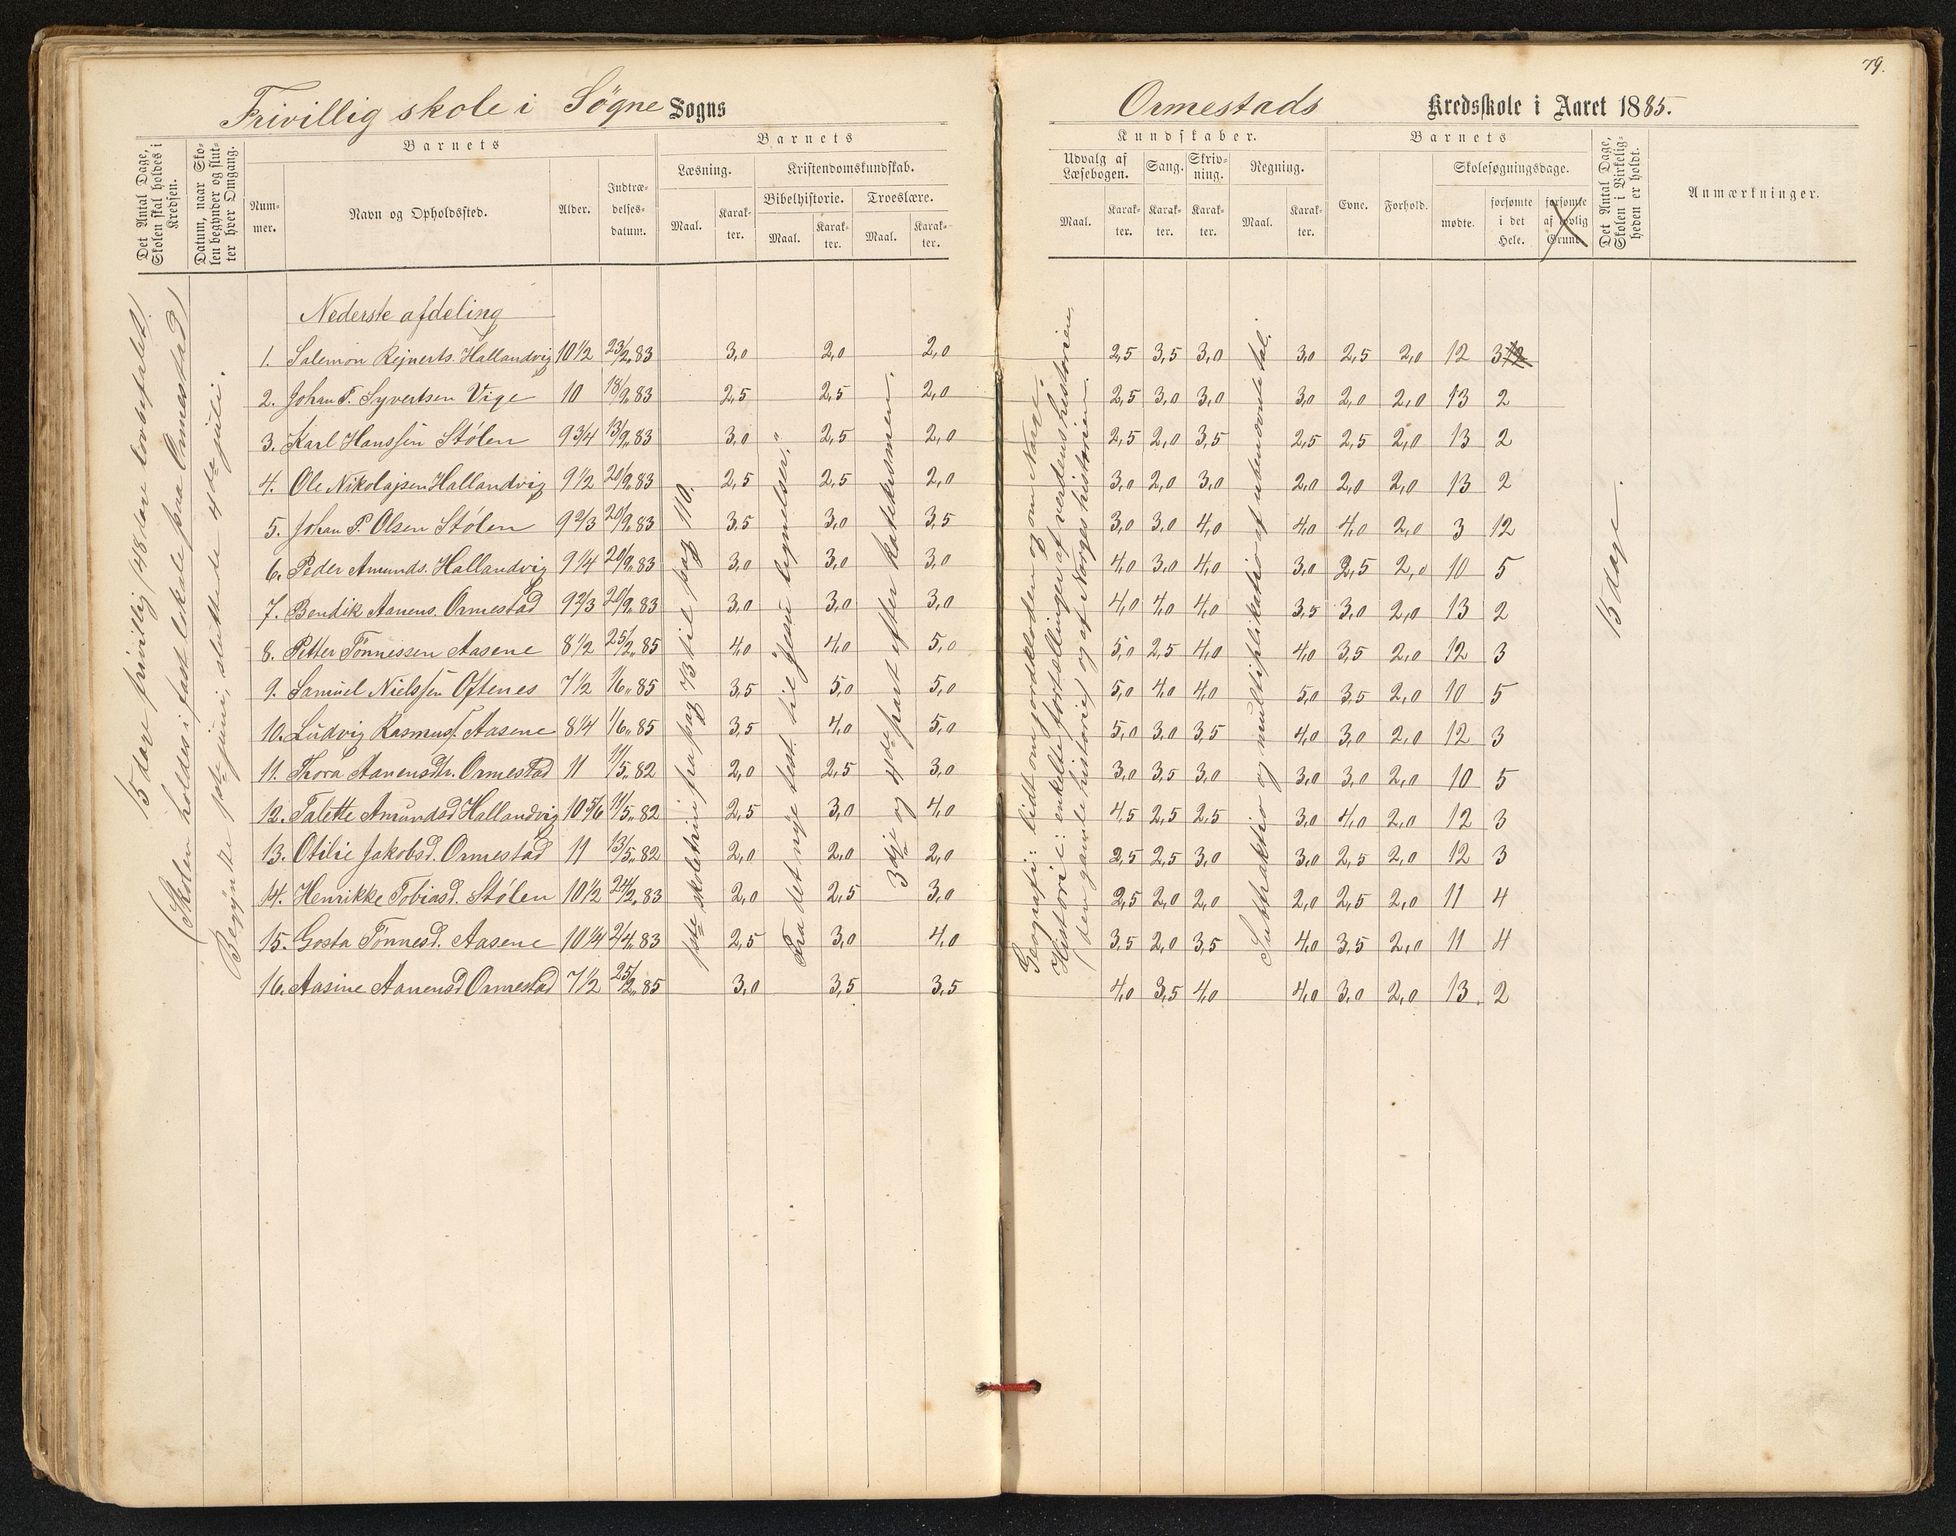 79.
Frivillig skole i Søgne Sogns Ormestads Kredsskole i Aaret 1885.
Det Antal Dage, Skolen skal holdes i Kredsen.
Datum, naar Skolen begynder og slutter hver Omgang.
Barnets
Barnets
Kundskaber.
Barnets
Nummer.
Navn og Opholdssted.
Alder.
Indtrædelsesdatum.
Læsning.
Kristendomskundskab.
Bibelhistorie. Troeslære.
Maal. Karakter. Maal. Karakter. Maal. Karakter.
Udvalg af Læsebogen.
Sang.
Skrivning.
Regning.
Maal. Karakter. Karakter. Karakter. Maal. Karakter.
Evne. Forhold.
Skolesøgningsdage.
mødte. forsømte i det Hele. forsømte af lovlig Grund.
Det Antal Dage, Skolen i Virkeligheden er holdt.
Anmærkninger.
15 dage frivillig (48 dage lovbefalet).
(Skolen holdes i fast lokale paa Ormestad)
Begynte 1ste juni, sluttede 4de juli.
Nederste afdeling
1. Salemon Rejnerts. Hallandvig 10 1/2 23/2 83 3,0 2,0 2,0 2,5 3,5 3,0 3,0 2,5 2,0 12 3
2. Johan T. Syvertsen Vige 10 18/9 83 2,5 2,5 2,0 2,5 3,0 3,0 3,0 2,0 2,0 13 2
3. Karl Hanssen Stølen 9 3/4 13/9 83 3,0 2,5 2,0 2,5 2,0 3,5 2,5 2,5 2,0 13 2
4. Ole Nikolajsen Hallandvig 9 1/2 20/9 83 2,5 2,5 2,0 3,0 2,0 3,0 2,0 2,0 2,0 13 2
5. Johan P. Olsen Stølen 9 2/3 20/9 83 3,5 3,0 3,5 3,0 3,0 4,0 4,0 4,0 2,0 3 12
6. Peder Amunds. Hallandvig 9 1/4 20/9 83 3,0 3,0 3,0 4,0 3,0 4,0 3,0 2,5 2,0 10 5
7. Bendik Aanens. Ormestad 9 2/3 20/9 83 3,0 3,0 3,0 4,0 4,0 4,0 3,5 3,0 2,0 13 2
8. Petter Tønnessen Aasene 8 1/2 25/2 85 4,0 4,0 5,0 5,0 2,5 4,0 4,0 3,5 2,0 12 3
9. Samuel Nielssen Oftenes 7 1/2 1/6 85 3,5 5,0 5,0 5,0 4,0 4,0 5,0 3,5 2,0 10 5
10. Ludvig Rasmuss. Aasene 8 1/4 1/6 85 3,5 4,0 5,0 5,0 3,0 3,5 4,0 3,0 2,0 12 3
11. Thora Aanensdtr. Ormestad 11 11/5 82 2,0 2,5 3,0 3,0 3,5 3,0 3,0 3,0 2,0 10 5
12. Talette Amundsd Hallandvig 10 5/6 11/5 82 2,5 3,0 4,0 4,5 2,5 2,5 3,0 4,0 2,0 12 3
13. Otilie Jakobsd. Ormestad 11 13/5 82 2,0 2,0 2,0 2,5 2,5 3,0 3,0 2,5 2,0 12 3
14. Henrikke Tobiasd. Stølen 10 1/2 24/2 83 2,0 2,5 3,0 2,5 2,0 2,0 2,0 2,5 2,0 11 4
15. Gosta Tønnesd. Aasene 10 1/4 2/4 83 2,5 3,0 4,0 3,5 2,0 3,5 4,0 3,5 2,0 11 4
16. Aasine Aanensd Ormestad 7 1/2 25/2 85 3,0 3,5 3,5 4,0 3,5 4,0 4,0 3,0 2,0 13 2
1ste skoletrin fra pag 73 til pag 110.
Fra det nye test. til "Jesu lignelser."
3dje og 4de part efter katekismen.
Geografi: lidt om jordkloden og om Norge.
Historie: enkelte fortællinger af verdenshistorien
(den gamle historie) og af Norges historien.
Subtraktio og multiplikatio af ubenævnte tal.
15 dage.